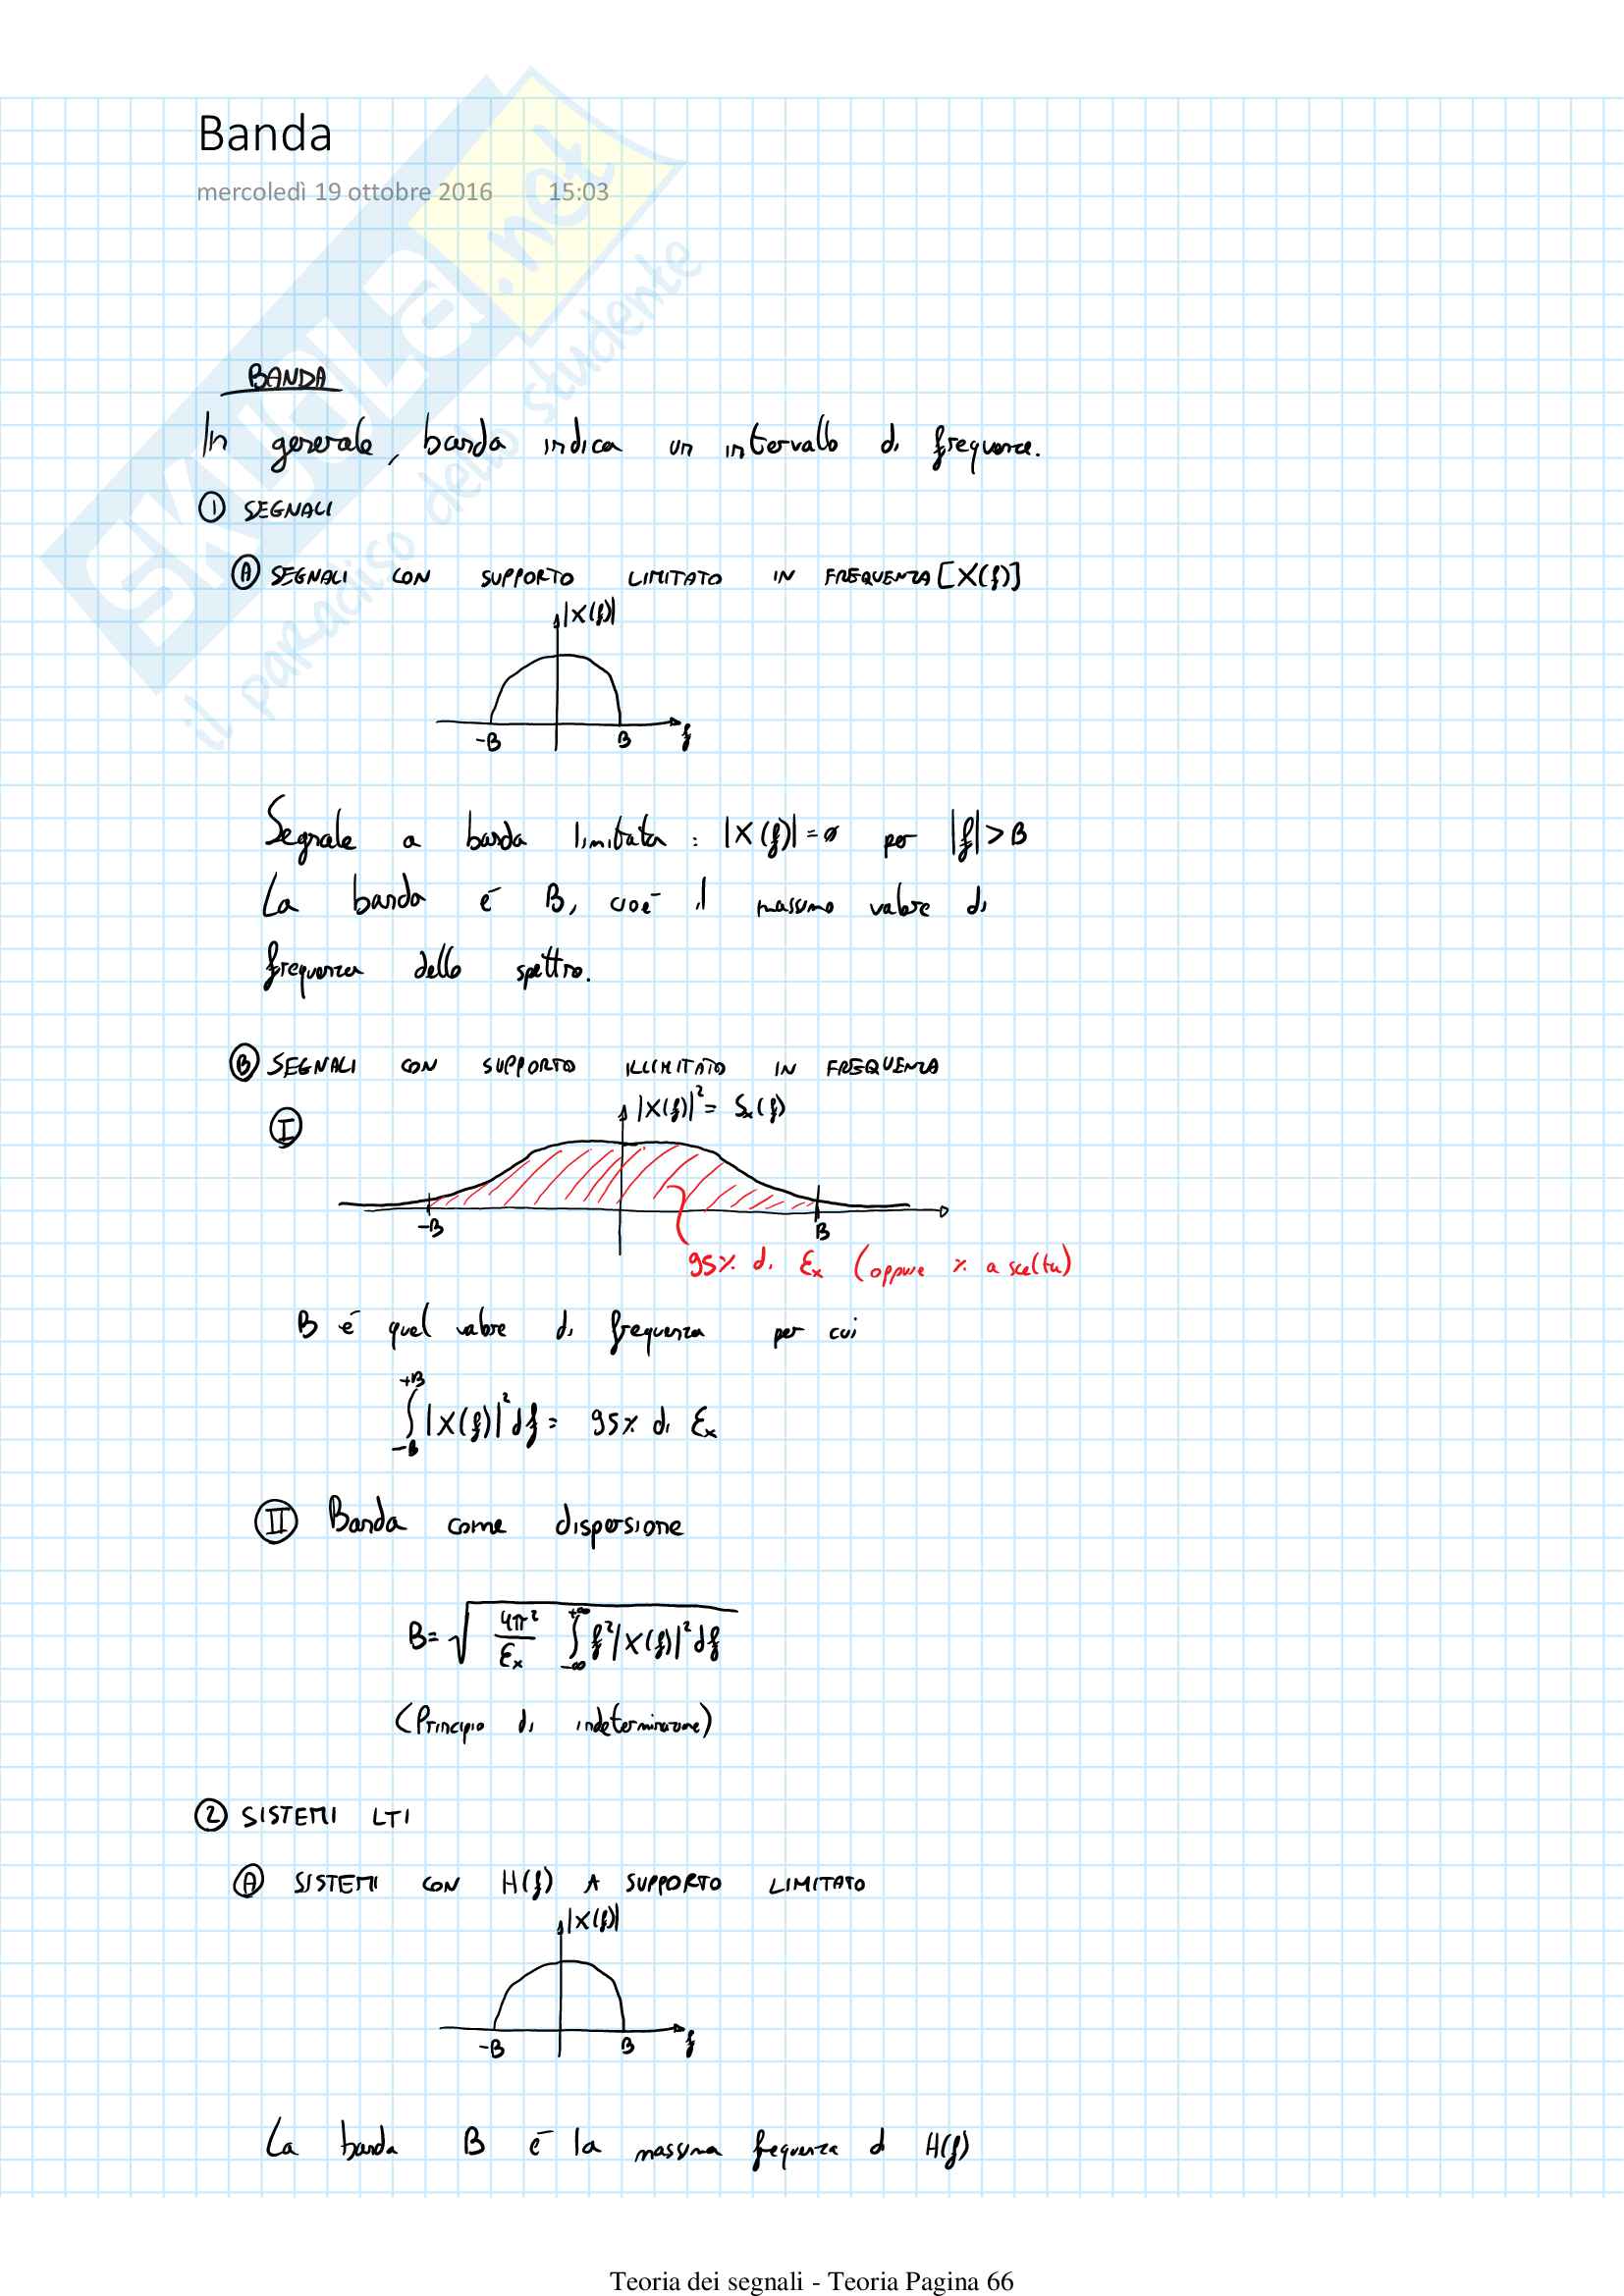 Banda
mercoledì 19 ottobre 2016 15:03
SKUOLA.net
il paradiso dello studente
BANDA
In generale, banda indica un intervallo di frequenze.
① SEGNALI
Ⓐ SEGNALI CON SUPPORTO LIMITATO IN FREQUENZA [X(f)]
|X(f)|
-B B f
Segnale a banda limitata : |X(f)| = 0 per |f| > B
La banda è B, cioè il massimo valore di
frequenza dello spettro.
Ⓑ SEGNALI CON SUPPORTO ILLIMITATO IN FREQUENZA
Ⓘ |X(f)|² = Sx(f)
-B B
95% di Ex (oppure % a scelta)
B è quel valore di frequenza per cui
∫_{-B}^{+B} |X(f)|² df = 95% di Ex
II Banda come dispersione
B = √( 4π²/Ex ∫_{-∞}^{+∞} f² |X(f)|² df )
(Principio di indeterminazione)
② SISTEMI LTI
Ⓐ SISTEMI CON H(f) A SUPPORTO LIMITATO
|X(f)|
-B B f
La banda B è la massima frequenza d H(f)
Teoria dei segnali - Teoria Pagina 66